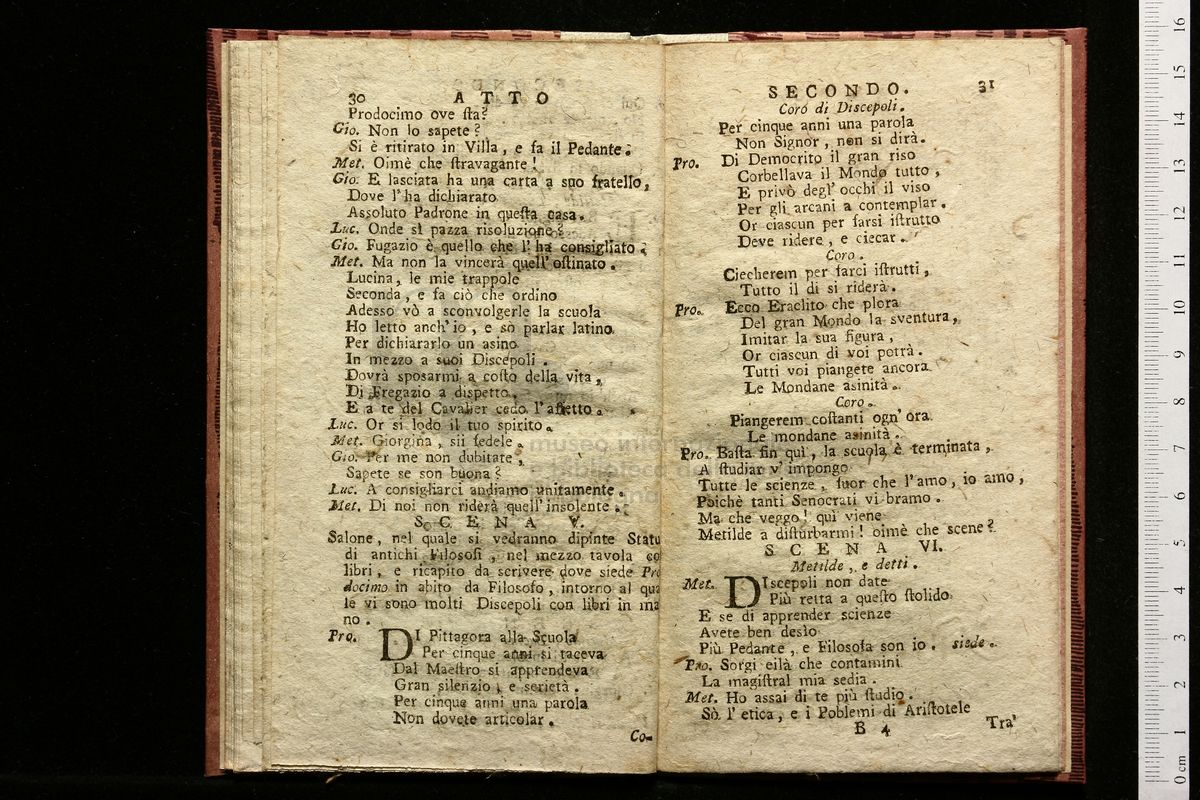 30 ATTO
Prodocimo ove sta?
Gio. Non lo sapete?
Si è ritirato in Villa, e fa il Pedante.
Met. Oimè che stravagante!
Gio. E lasciata ha una carta a suo fratello,
Dove l'ha dichiarato
Assoluto Padrone in questa casa.
Luc. Onde sì pazza risoluzione?
Gio. Fugazio è quello che l'ha consigliato.
Met. Ma non la vincerà quell'ostinato.
Lucina, le mie trappole
Seconda, e fa ciò che ordino
Adesso vò a sconvolgerle la scuola
Ho letto anch'io, e so parlar latino
Per dichiararlo un asino
In mezzo a suoi Discepoli.
Dovrà sposarmi a costo della vita,
Di Fregazio a dispetto,
E a te del Cavalier cedo l'affetto.
Luc. Or si lodo il tuo spirito.
Met. Giorgina, sii fedele.
Gio. Per me non dubitate,
Sapete se son buona?
Luc. A consigliarci andiamo unitamente.
Met. Di noi non riderà quell'insolente.
SCENA V.
Salone, nel quale si vedranno dipinte Statu
di antichi Filosofi, nel mezzo tavola co
libri, e ricapito da scrivere dove siede Pro
docimo in abito da Filosofo, intorno al qua
le vi sono molti Discepoli con libri in ma
no.
Pro. DI Pittagora alla Scuola
Per cinque anni si taceva
Dal Maestro si apprendeva
Gran silenzio, e serietà.
Per cinque anni una parola
Non dovete articolar.
Co-
SECONDO. 31
Coro di Discepoli.
Per cinque anni una parola
Non Signor, non si dirà.
Pro. Di Democrito il gran riso
Corbellava il Mondo tutto,
E privò degl'occhi il viso
Per gli arcani a contemplar.
Or ciascun per farsi istrutto
Deve ridere, e ciecar.
Coro.
Ciecherem per farci istrutti,
Tutto il di si riderà.
Pro. Ecco Eraclito che plora
Del gran Mondo la sventura,
Imitar la sua figura,
Or ciascun di voi potrà.
Tutti voi piangete ancora
Le Mondane asinità.
Coro.
Piangerem costanti ogn'ora
Le mondane asinità.
Pro. Basta fin quì, la scuola è terminata,
A studiar v'impongo
Tutte le scienze, fuor che l'amo, io amo,
Poichè tanti Senocrati vi bramo.
Ma che veggo! quì viene
Metilde a disturbarmi! oimè che scene?
SCENA VI.
Metilde, e detti.
Met. DIscepoli non date
Più retta a questo stolido
E se di apprender scienze
Avete ben desìo
Più Pedante, e Filosofa son io. siede.
Pro. Sorgi eilà che contamini
La magistral mia sedia.
Met. Ho assai di te più studio.
Sò l'etica, e i Poblemi di Aristotele
B 4 Tra'
0 cm 1 2 3 4 5 6 7 8 9 10 11 12 13 14 15 16